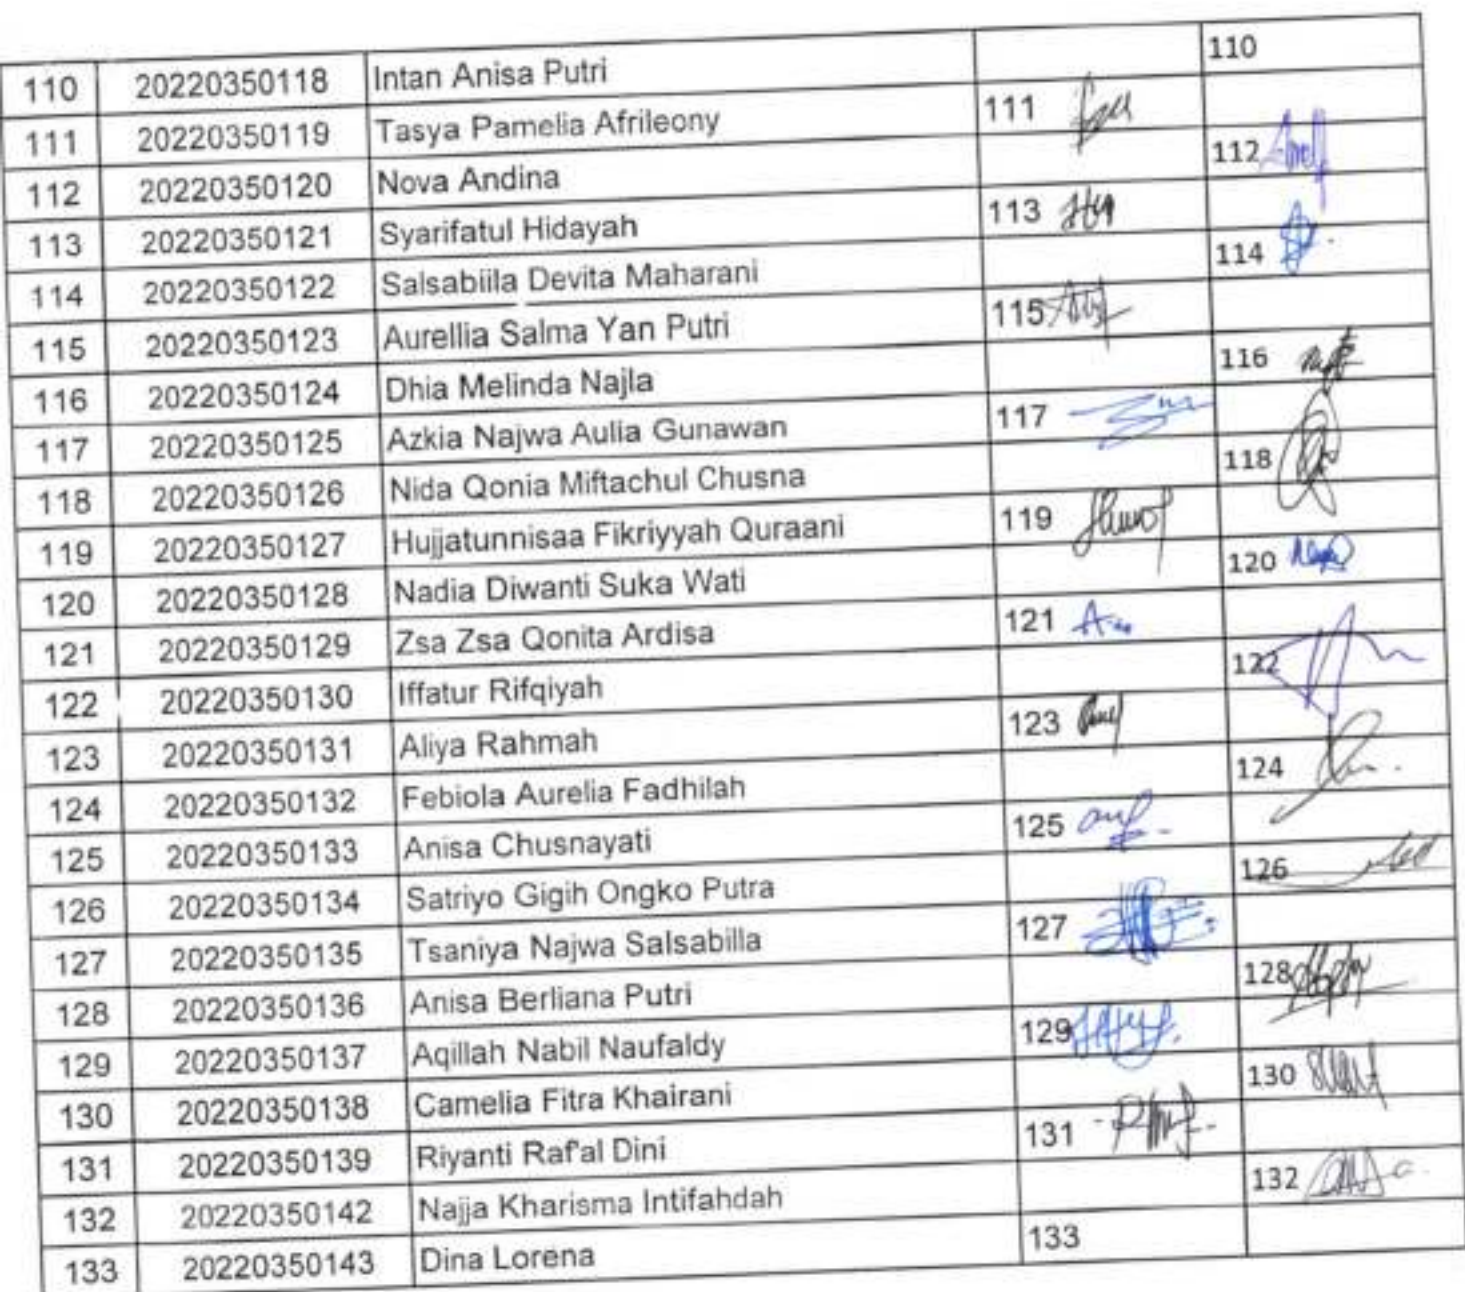 110 20220350118 Intan Anisa Putri 110
111 20220350119 Tasya Pamelia Afrileony 111
112 20220350120 Nova Andina 112
113 20220350121 Syarifatul Hidayah 113
114 20220350122 Salsabiila Devita Maharani 114
115 20220350123 Aurellia Salma Yan Putri 115
116 20220350124 Dhia Melinda Najla 116
117 20220350125 Azkia Najwa Aulia Gunawan 117
118 20220350126 Nida Qonia Miftachul Chusna 118
119 20220350127 Hujjatunnisaa Fikriyyah Quraani 119
120 20220350128 Nadia Diwanti Suka Wati 120
121 20220350129 Zsa Zsa Qonita Ardisa 121
122 20220350130 Iffatur Rifqiyah 122
123 20220350131 Aliya Rahmah 123
124 20220350132 Febiola Aurelia Fadhilah 124
125 20220350133 Anisa Chusnayati 125
126 20220350134 Satriyo Gigih Ongko Putra 126
127 20220350135 Tsaniya Najwa Salsabilla 127
128 20220350136 Anisa Berliana Putri 128
129 20220350137 Aqillah Nabil Naufaldy 129
130 20220350138 Camelia Fitra Khairani 130
131 20220350139 Riyanti Raf'al Dini 131
132 20220350142 Najja Kharisma Intifahdah 132
133 20220350143 Dina Lorena 133